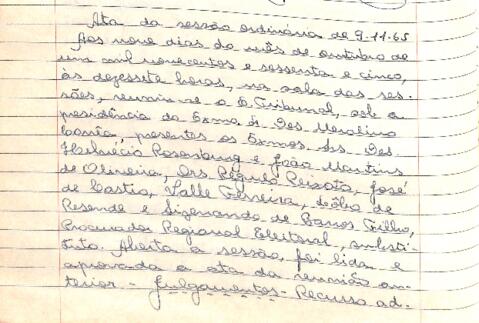 Ata da sessão ordinária de 9-11-65
Aos nove dias do mês de outubro de
um mil novecentos e sessenta e cinco,
às dezessete horas, na sala das ses-
sões, reuniu-se o E. Tribunal, sob a
presidência do Exmo. Sr. Des.
Corrêa, presentes os Exmos. Srs. Des.
Rosenburg e João Martins
de Oliveira, Drs. Régulo Peixoto, José
de Castro, Valle Ferreira, Cólen de
Resende e Sizenando de Barros Filho,
Procurador Regional Eleitoral, substi-
tuto. Aberta a sessão, foi lida e
aprovada a ata da reunião an-
terior. - Julgamentos - Recurso ad-